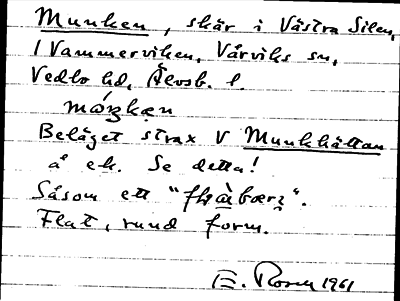 Munken, skär i Västra Silen,
i Vammerviken, Vårviks sn,
Vedbo hd, Älvsb. l.
Beläget strax V Munkhättan
å ek. Se detta!
Såsom ett
Flat, rund form.
E. Rosen 1961